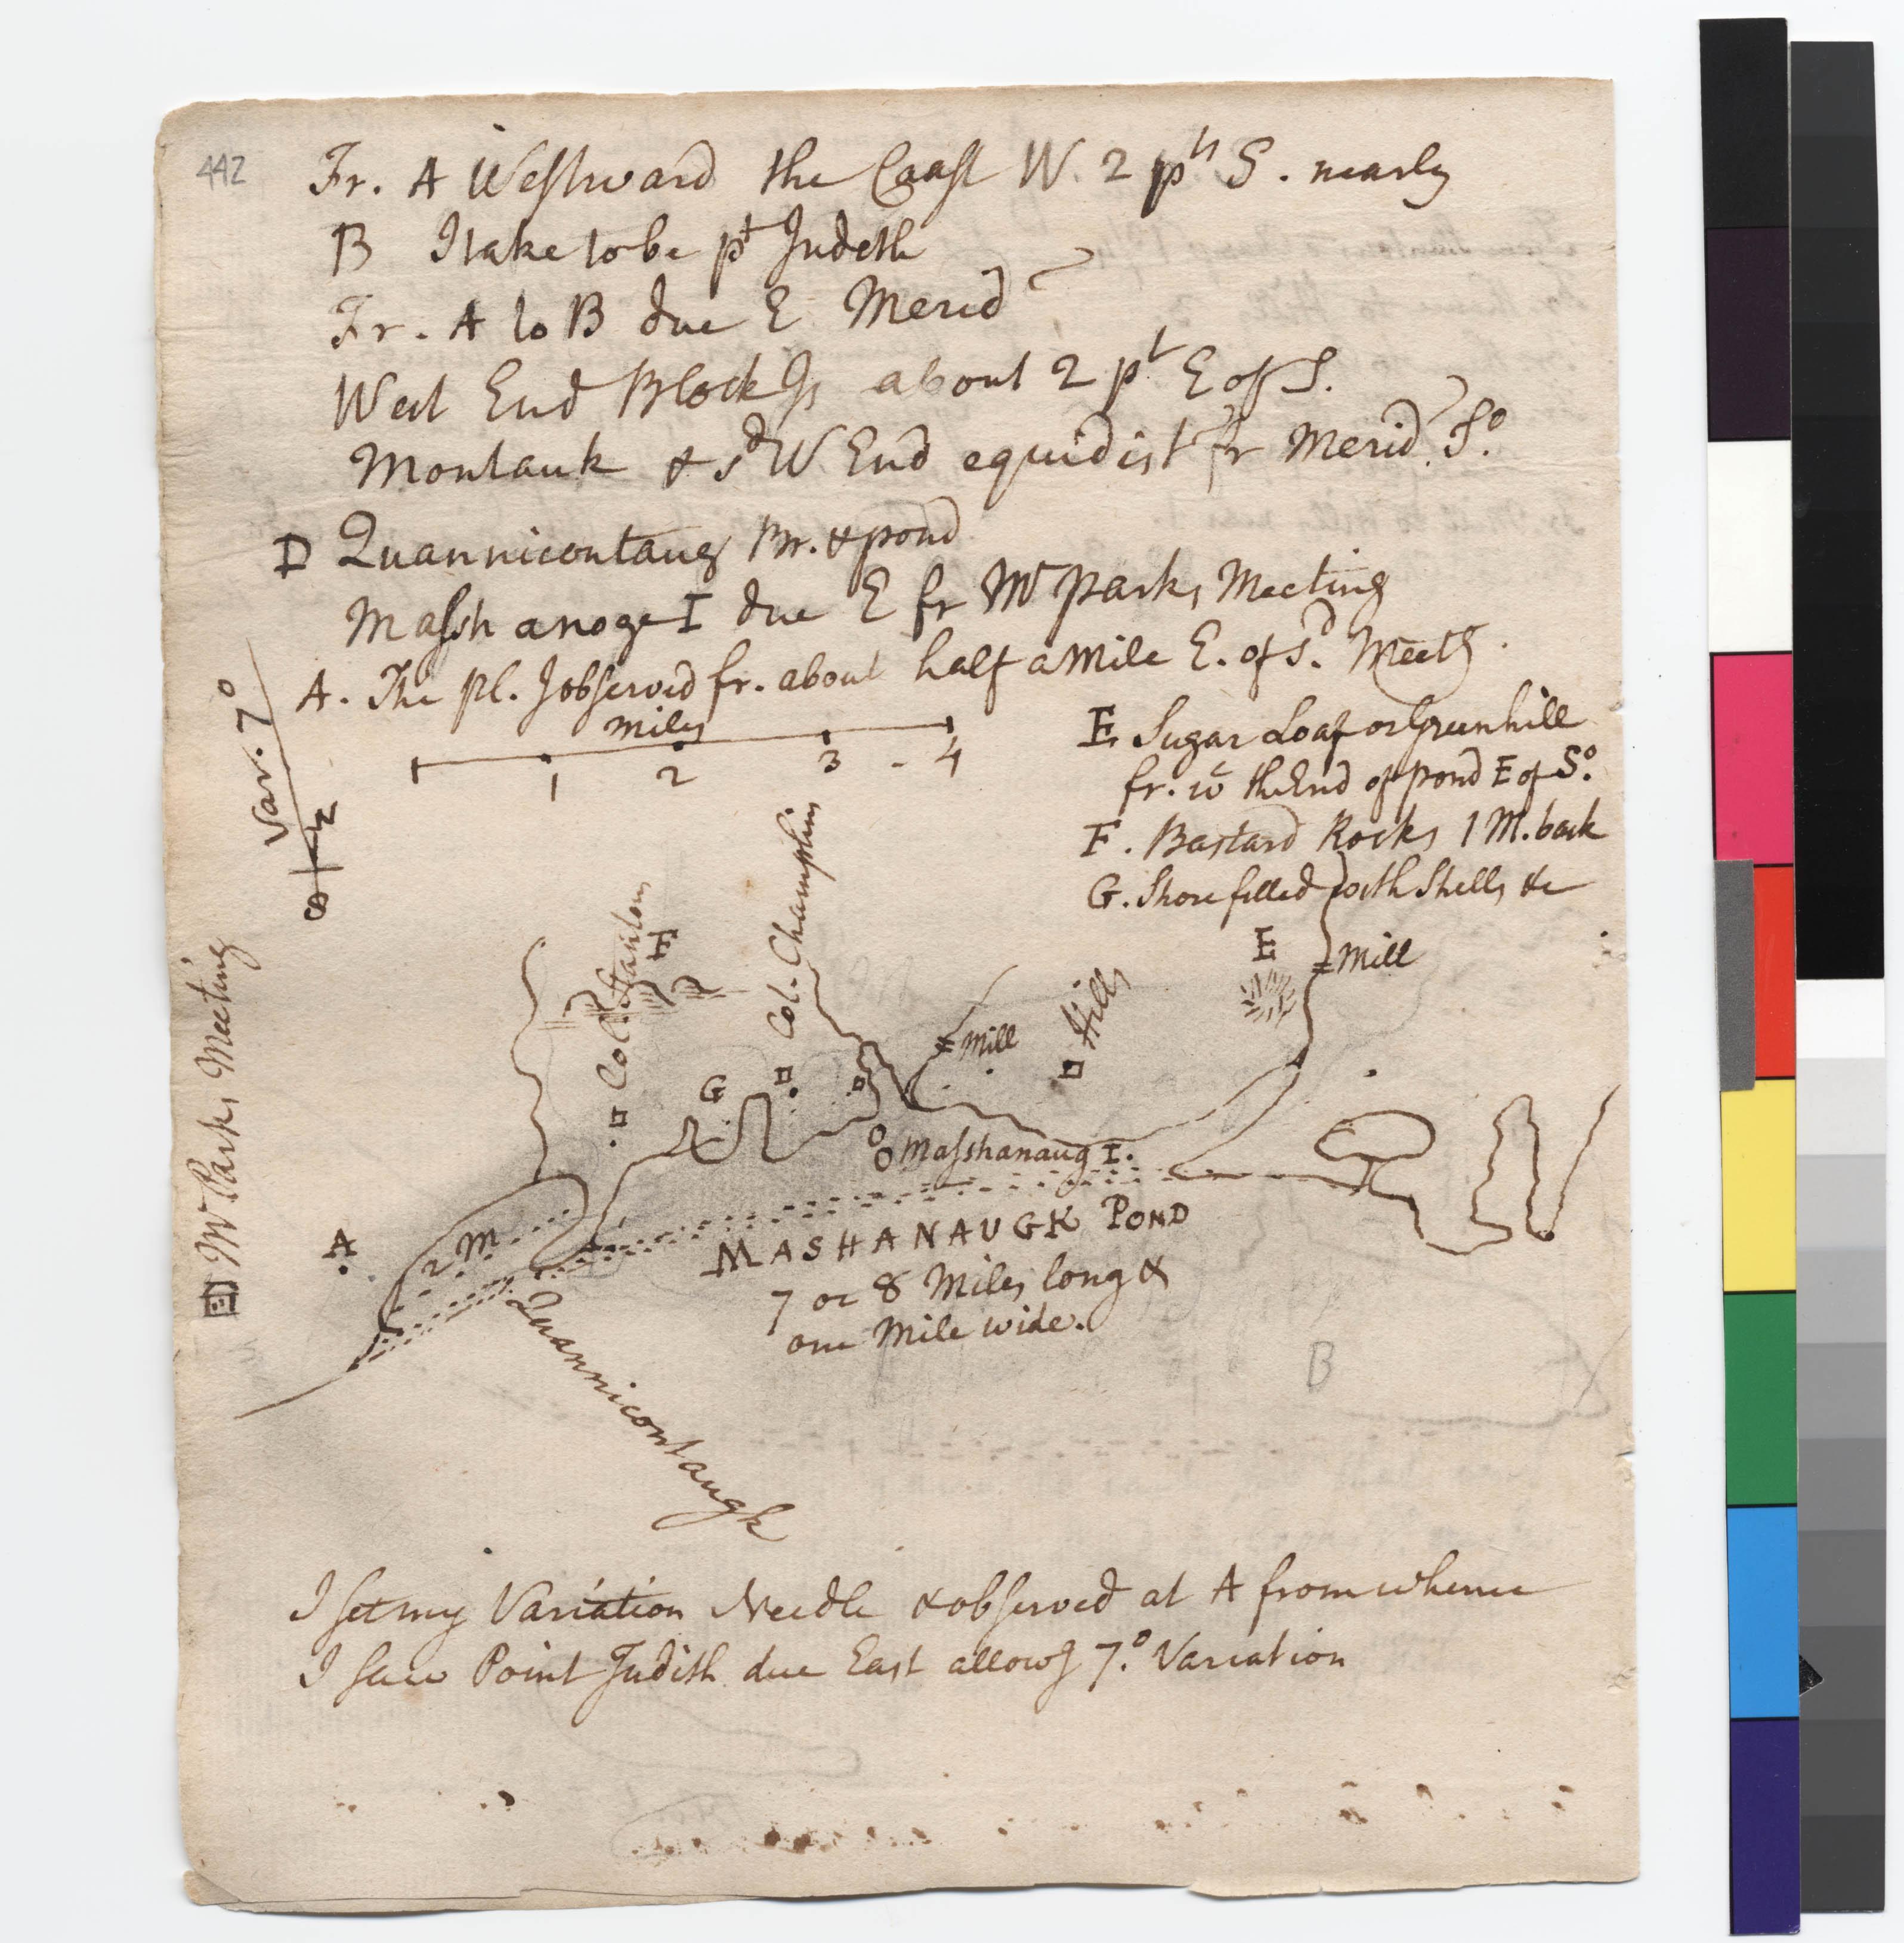 442
Fr. A Westward the Coast W. 2 pts S. nearly
B I take to be pt Judeth
Fr. A to B due E Merid
West End Block Is about 2 pt E of S.
Montauk & sd W. End equidist fr Merid. So
D Quannicontaug Br. & pond
Masshanoge I due E fr Mr Parks Meeting
A. The pl. I observed fr. about half a Mile E. of sd. Meetg.
miles
1 2 3 - 4
Var. 7°
S N
E Sugar Loaf or Greenhill
fr. wc the End of pond E of So.
F. Bastard Rocks 1 M. back
G. Shore filled with Shells &c
Mr Parks Meeting
Col. Stanton
F
Col. Champlin
G
Mill
Hills
E
Mill
Masshanaug I.
A
2 M
MASHANAUGK POND
7 or 8 Miles long &
one Mile wide.
B
Quannicontaugk
I set my Variation Needle & observed at A from whence
I saw Point Judith due East allowg 7.° Variation